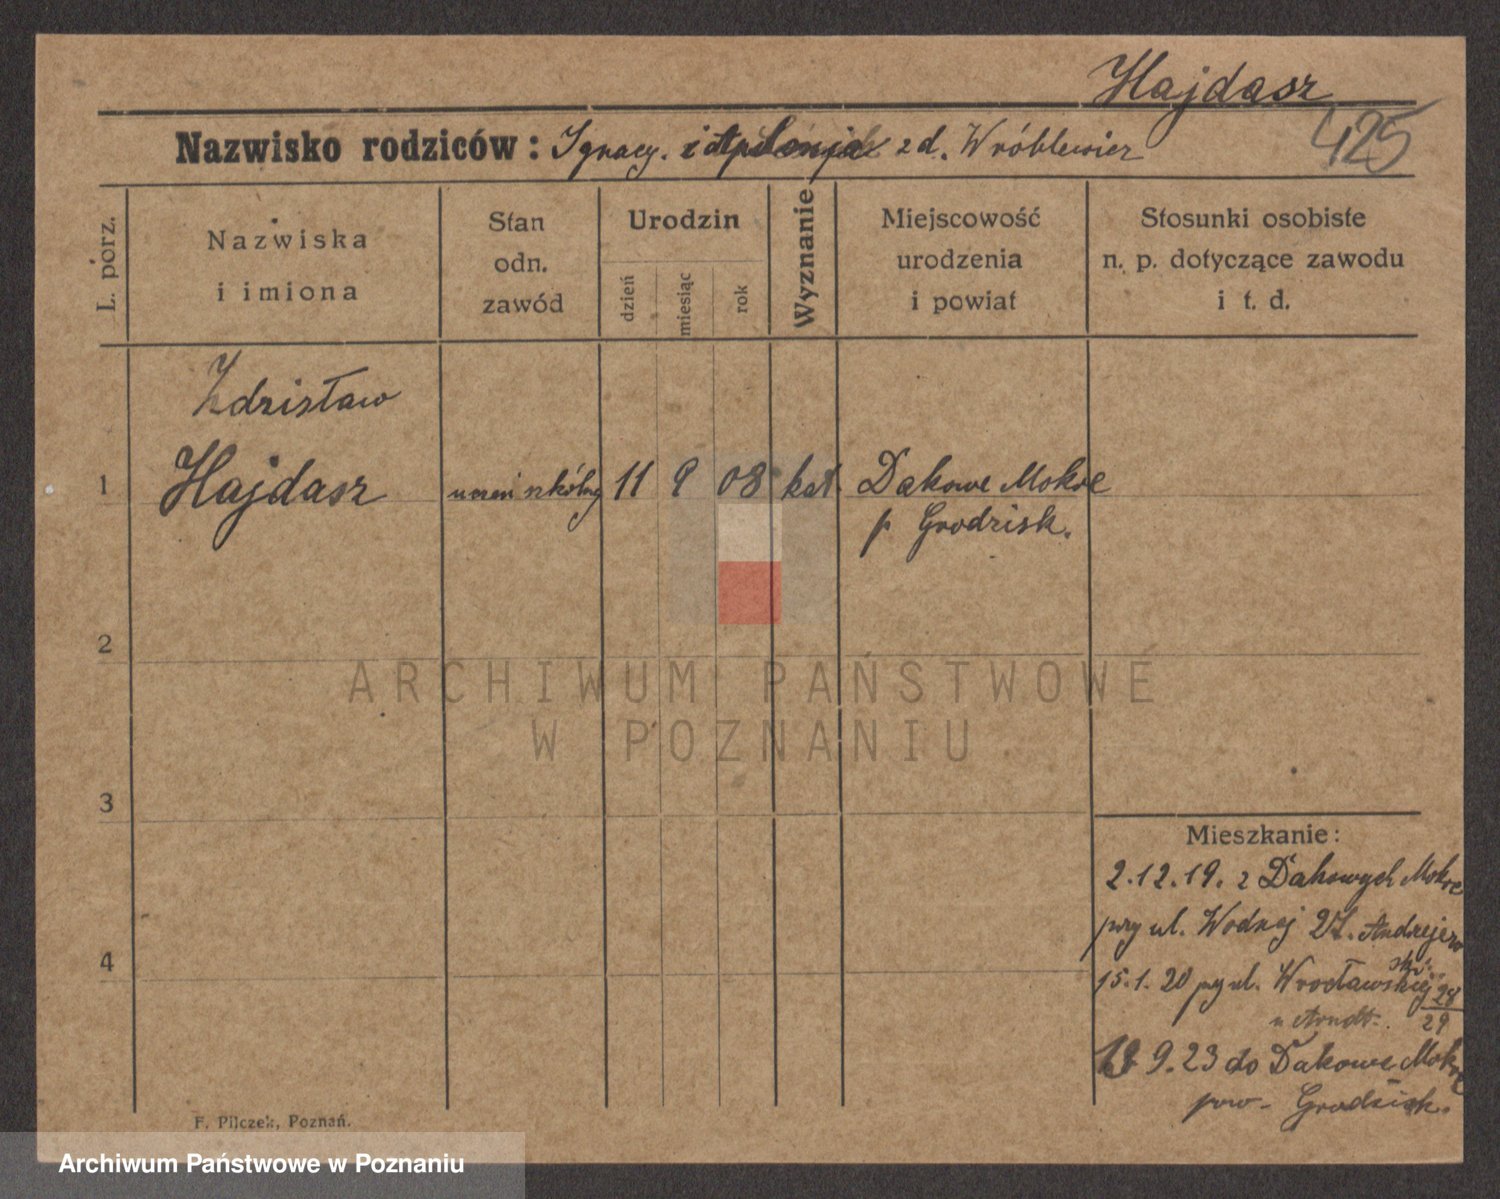 Hajdasz
425
Nazwisko rodziców: Ignacy. i Apolonja z d. Wróblewicz
L. porz.
Nazwiska
i imiona
Stan
odn.
zawód
Urodzin
dzień
miesiąc
rok
Wyznanie
Miejscowość
urodzenia
i powiat
Stosunki osobiste
n. p. dotyczące zawodu
i t. d.
Zdzisław
1 Hajdasz uczeń szkólny 11 9 08 kat. Dakowe Mokre
p Grodzisk.
2
ARCHIWUM PAŃSTWOWE
W POZNANIU
3
Mieszkanie:
2.12.19. z Dakowych Mokre
przy ul. Wodnej 27.
4
15.1.20 przy ul. Wrocławskiej 28
29
u Arndt.
9.23 do Dakowe Mokre
pow. Grodzisk.
F. Pilczek, Poznań.
Archiwum Państwowe w Poznaniu